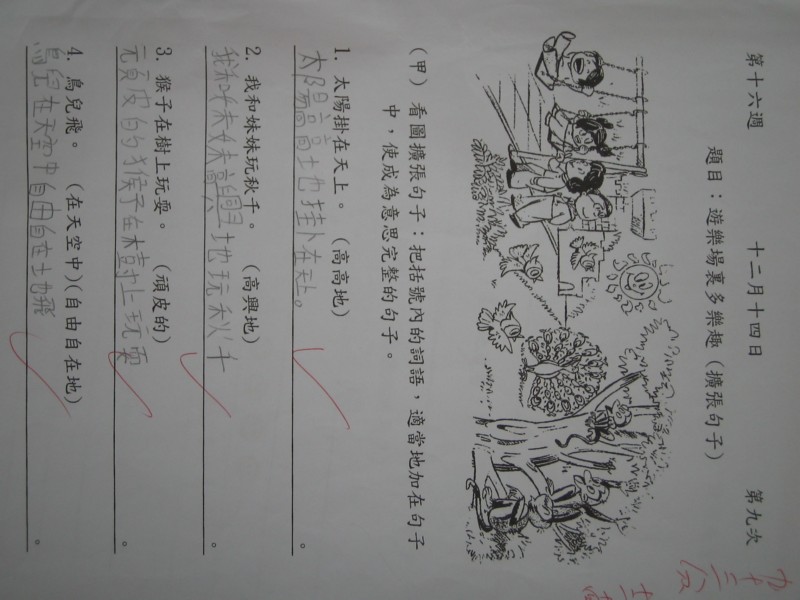 第十六週 十二月十四日 第九次
題目：遊樂場裏多樂趣（擴張句子）
九十三分
（甲）看圖擴張句子：把括號內的詞語，適當地加在句子
中，使成為意思完整的句子。
1. 太陽掛在天上。（高高地）
太陽高高地挂在天上。
2. 我和妹妹玩秋千。（高興地）
我和妹妹高興地玩秋千
3. 猴子在樹上玩耍。（頑皮的）
頑皮的猴子在樹上玩耍
4. 鳥兒飛。（在天空中）(自由自在地)
鳥兒在天空中自由自在地飛